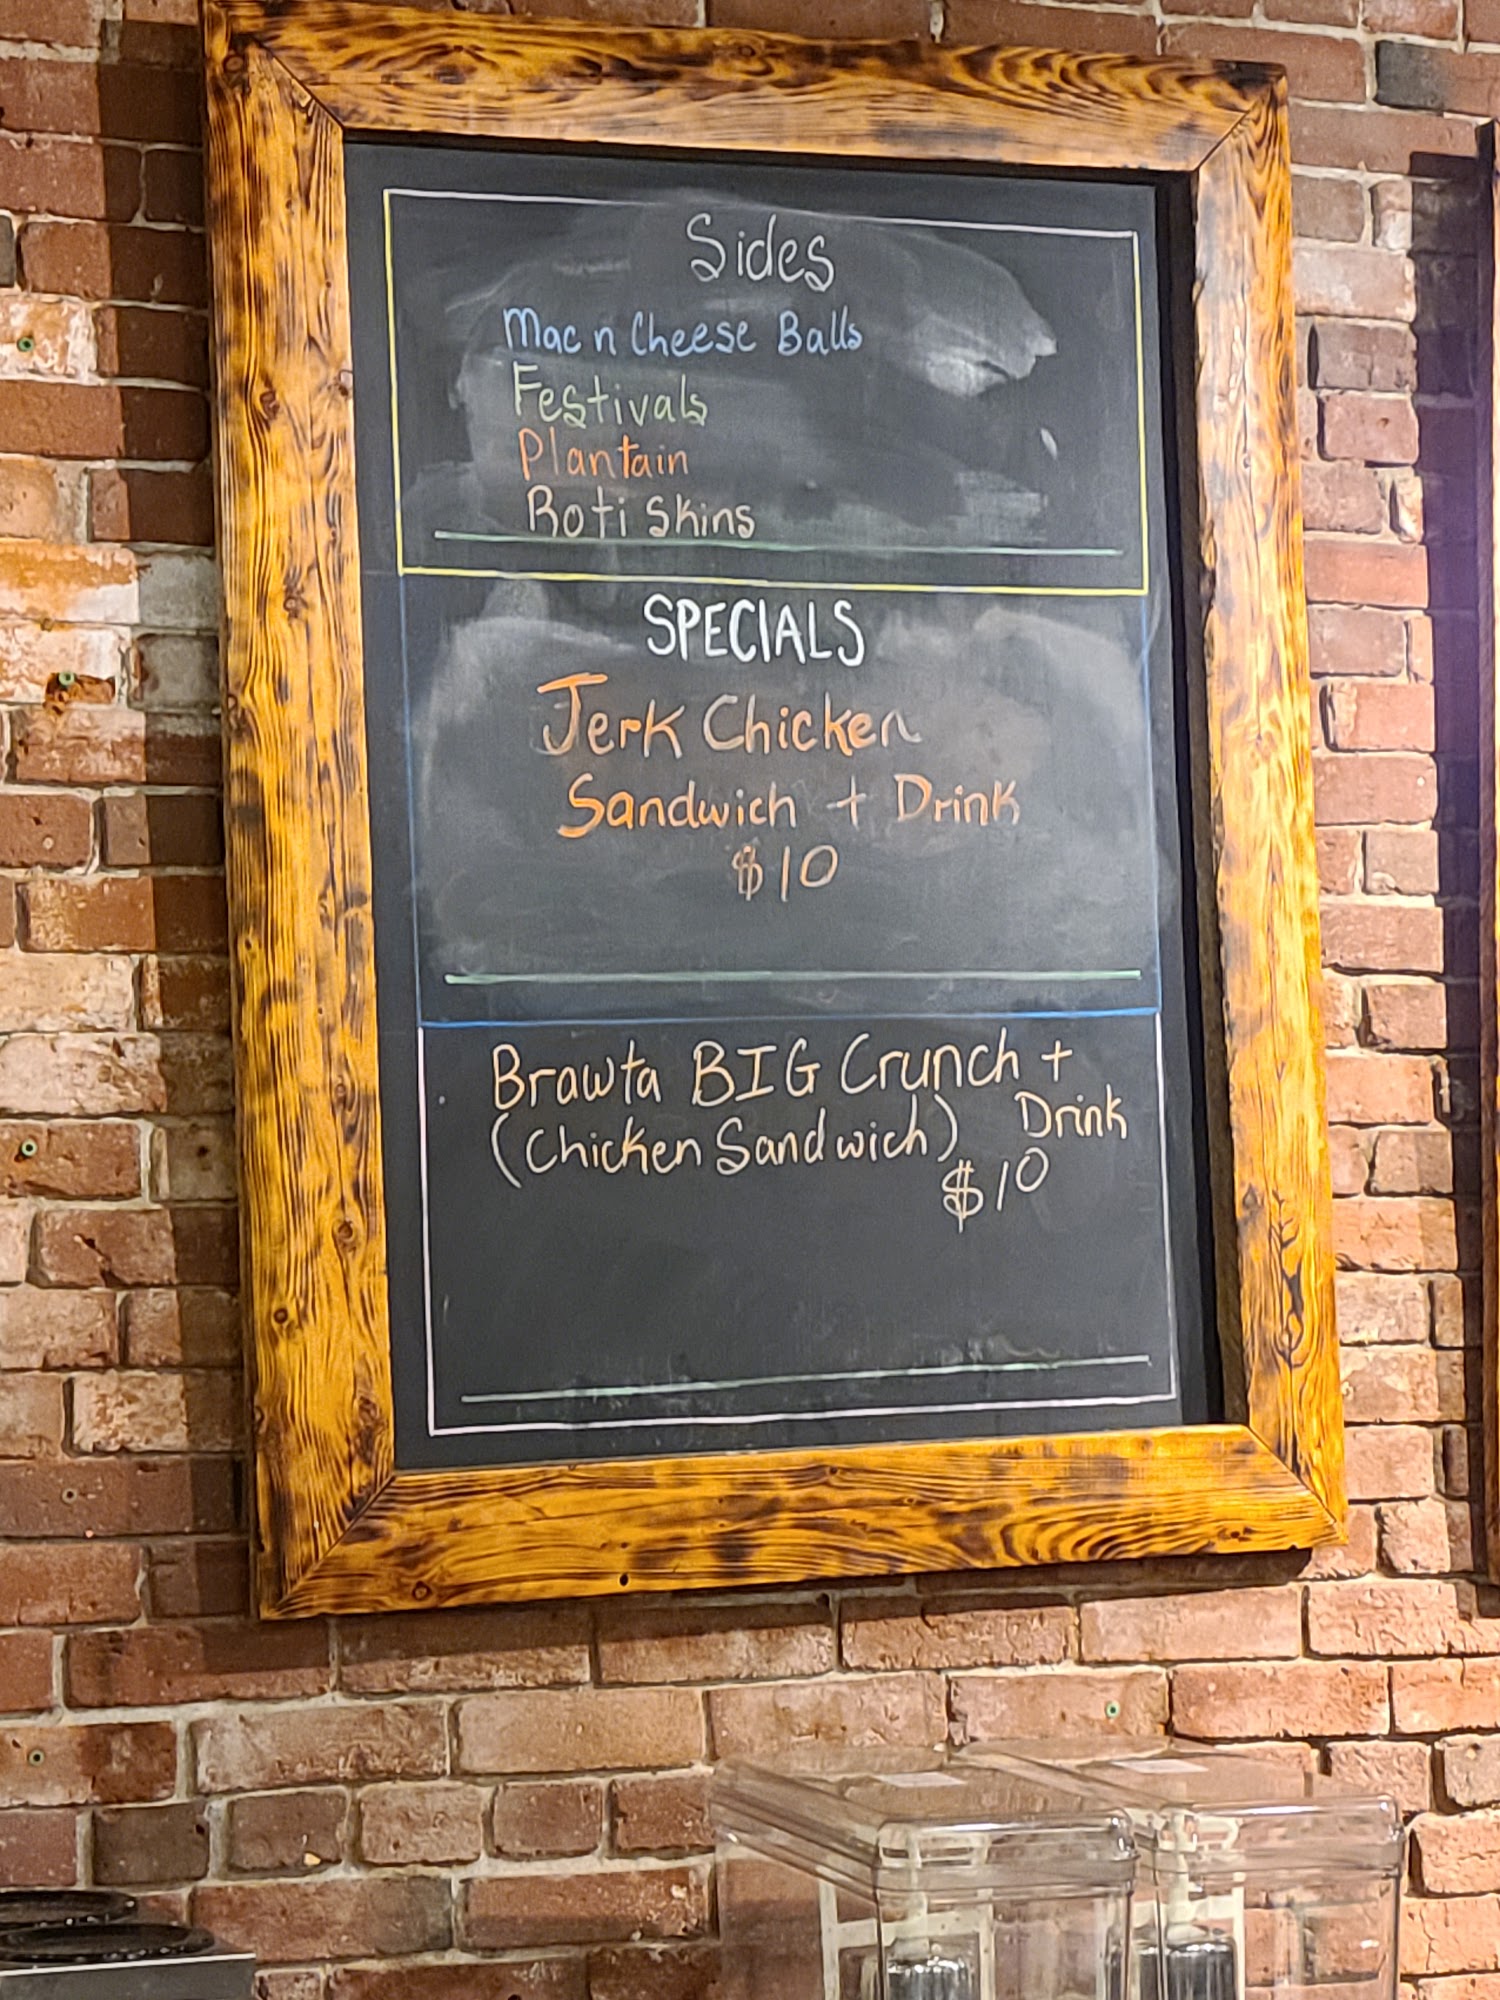 Sides
Mac n Cheese Balls
Festivals
Plantain
Roti Skins
SPECIALS
Jerk Chicken
Sandwich + Drink
$10
Brawta BIG Crunch +
(Chicken Sandwich) Drink
$10